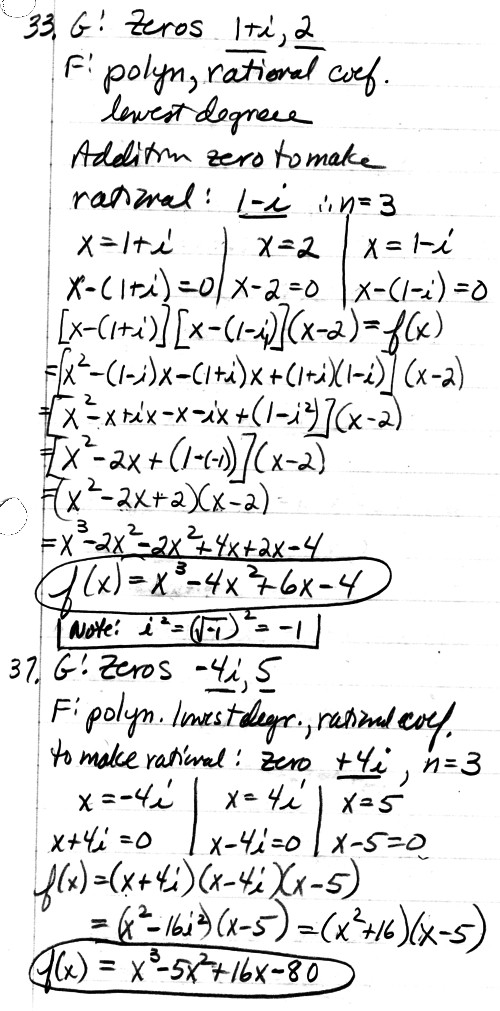 33. G: Zeros 1+i, 2
F: polyn, rational coef.
lowest degree
Addition zero to make
rational: 1-i ∴ n=3
x=1+i | x=2 | x=1-i
x-(1+i)=0 | x-2=0 | x-(1-i)=0
[x-(1+i)][x-(1-i)](x-2)=f(x)
=[x²-(1-i)x-(1+i)x+(1+i)(1-i)](x-2)
=[x²-x+ix-x-ix+(1-i²)](x-2)
=[x²-2x+(1-(-1))](x-2)
=(x²-2x+2)(x-2)
=x³-2x²-2x²+4x+2x-4
f(x)=x³-4x²+6x-4
Note: i²=(√-1)²=-1
37. G: Zeros -4i, 5
F: polyn. lowest degr., rational coef.
to make rational: zero +4i, n=3
x=-4i | x=4i | x=5
x+4i=0 | x-4i=0 | x-5=0
f(x)=(x+4i)(x-4i)(x-5)
=(x²-16i²)(x-5)=(x²+16)(x-5)
f(x)=x³-5x²+16x-80